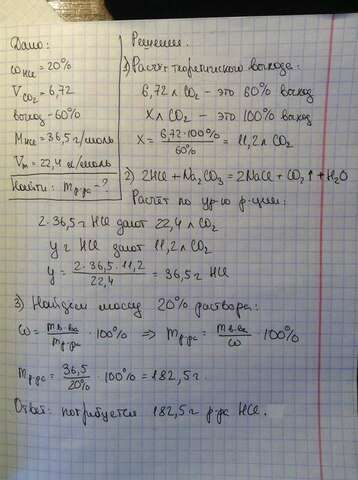 Дано:
ω HCl = 20%
V CO₂ = 6,72
выход - 60%
M HCl = 36,5 г/моль
Vm = 22,4 л/моль
Найти: m р-ра - ?
Решение.
1) Расчёт теоретического выхода:
6,72 л CO₂ - это 60% выход
X л CO₂ - это 100% выход
X = 6,72·100% / 60% = 11,2 л CO₂
2) 2HCl + Na₂CO₃ = 2NaCl + CO₂↑ + H₂O
Расчёт по ур-ю р-ции:
2·36,5 г HCl дают 22,4 л CO₂
y г HCl дают 11,2 л CO₂
y = 2·36,5·11,2 / 22,4 = 36,5 г HCl
3) Найдем массу 20% раствора:
ω = m в-ва / m р-ра · 100% ⇒ m р-ра = m в-ва / ω · 100%
m р-ра = 36,5 / 20% · 100% = 182,5 г.
Ответ: потребуется 182,5 г р-ра HCl.